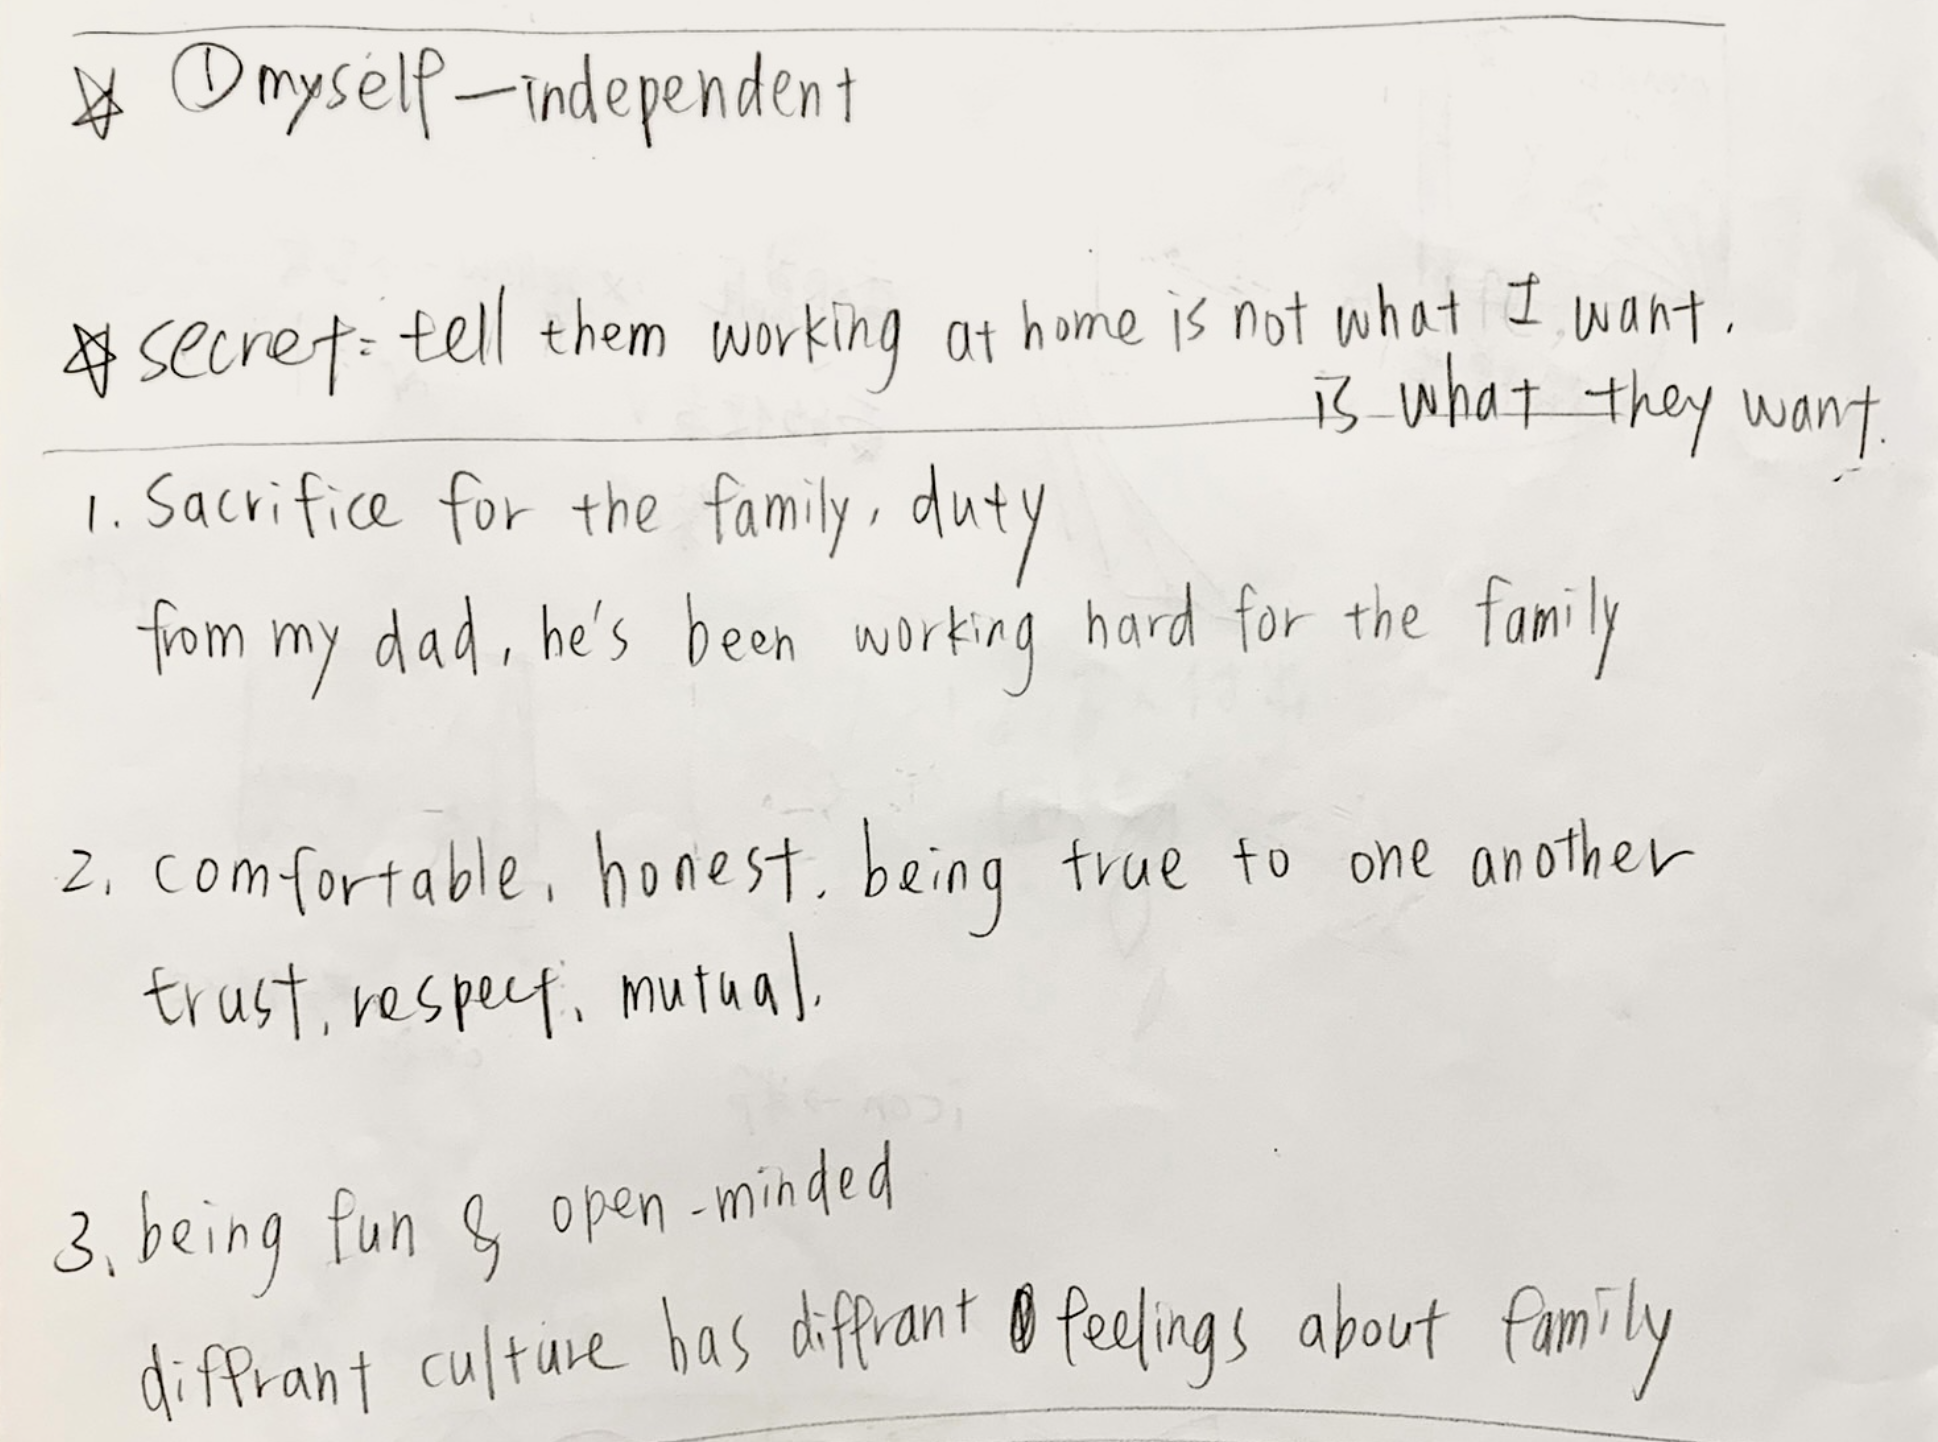 ☆ ① myself—independent
☆ secret: tell them working at home is not what I want.
is what they want.
1. Sacrifice for the family, duty
from my dad, he's been working hard for the family
2. comfortable, honest, being true to one another
trust, respect, mutual.
3. being fun & open-minded
diffrant culture has diffrant feelings about family